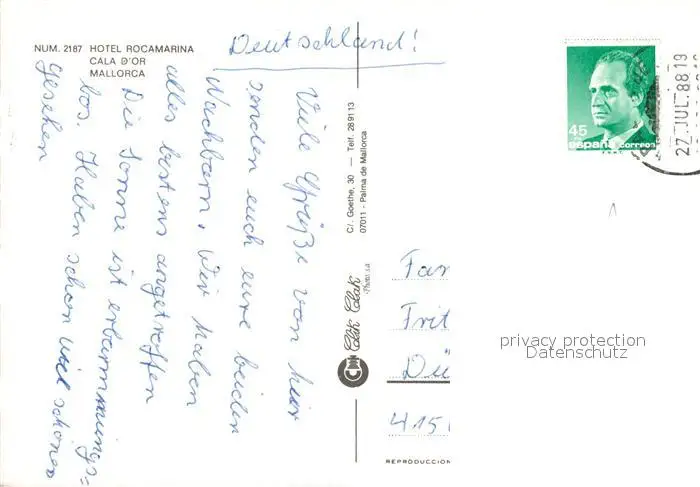 NUM. 2187 HOTEL ROCAMARINA
CALA D'OR
MALLORCA
Deutschland!
Viele Grüße von hier
senden euch eure beiden
Nachbarn. Wir haben
alles bestens angetroffen
Die Sonne ist erbarmungs=
los. Haben schon viel schönes
gesehen
C/. Goethe, 30 — Telf. 289113
07011 - Palma de Mallorca
Clik Clak
Photo, s.a.
45
españa correos
27 JUL. 88 19
Fam
Frit
Dü
415
REPRODUCCION
privacy protection
Datenschutz